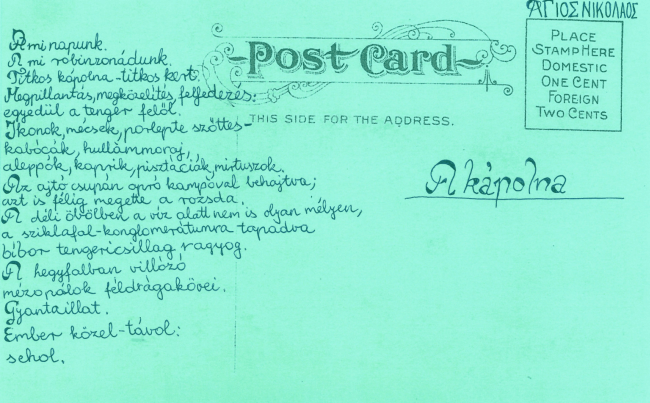 ΑΓΙΟΣ ΝΙΚΟΛΑΟΣ
Post Card
THIS SIDE FOR THE ADDRESS.
PLACE
STAMP HERE
DOMESTIC
ONE CENT
FOREIGN
TWO CENTS
A kápolna
A mi napunk.
A mi robinzonádunk.
Titkos kápolna - titkos kert.
Megpillantás, megközelítés, felfedezés:
egyedül a tenger felől.
Ikonok, mécsek, porlepte szőttes-
kabócák, hullámmoraj,
aleppók, kaprik, pisztáciák, mirtuszok.
Az ajtó csupán apró kampóval behajtva;
azt is félig megette a rozsda.
A déli öbölben a víz alatt nem is olyan mélyen,
a sziklafal-konglomerátumra tapadva
bíbor tengericsillag ragyog.
A hegyfalban villózó
mézopálok féldrágakövei.
Gyantaillat.
Ember közel-távol:
sehol.